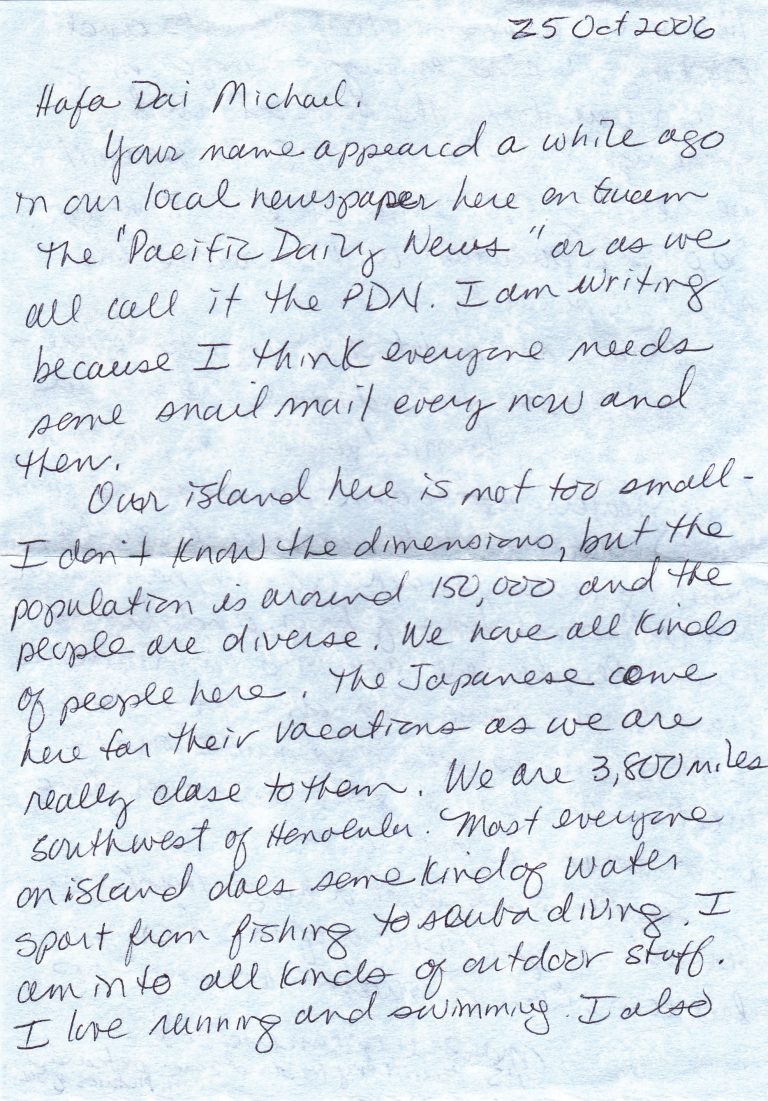 25 Oct 2006
Hafa Dai Michael.
Your name appeared a while ago
in our local newspaper here on Guam
the "Pacific Daily News" or as we
all call it the PDN. I am writing
because I think everyone needs
some snail mail every now and
then.
Our island here is not too small -
I don't know the dimensions, but the
population is around 150,000 and the
people are diverse. We have all kinds
of people here. The Japanese come
here for their vacations as we are
really close to them. We are 3,800 miles
southwest of Honolulu. Most everyone
on island does some kind of water
sport from fishing to scuba diving. I
am into all kinds of outdoor stuff.
I love running and swimming. I also